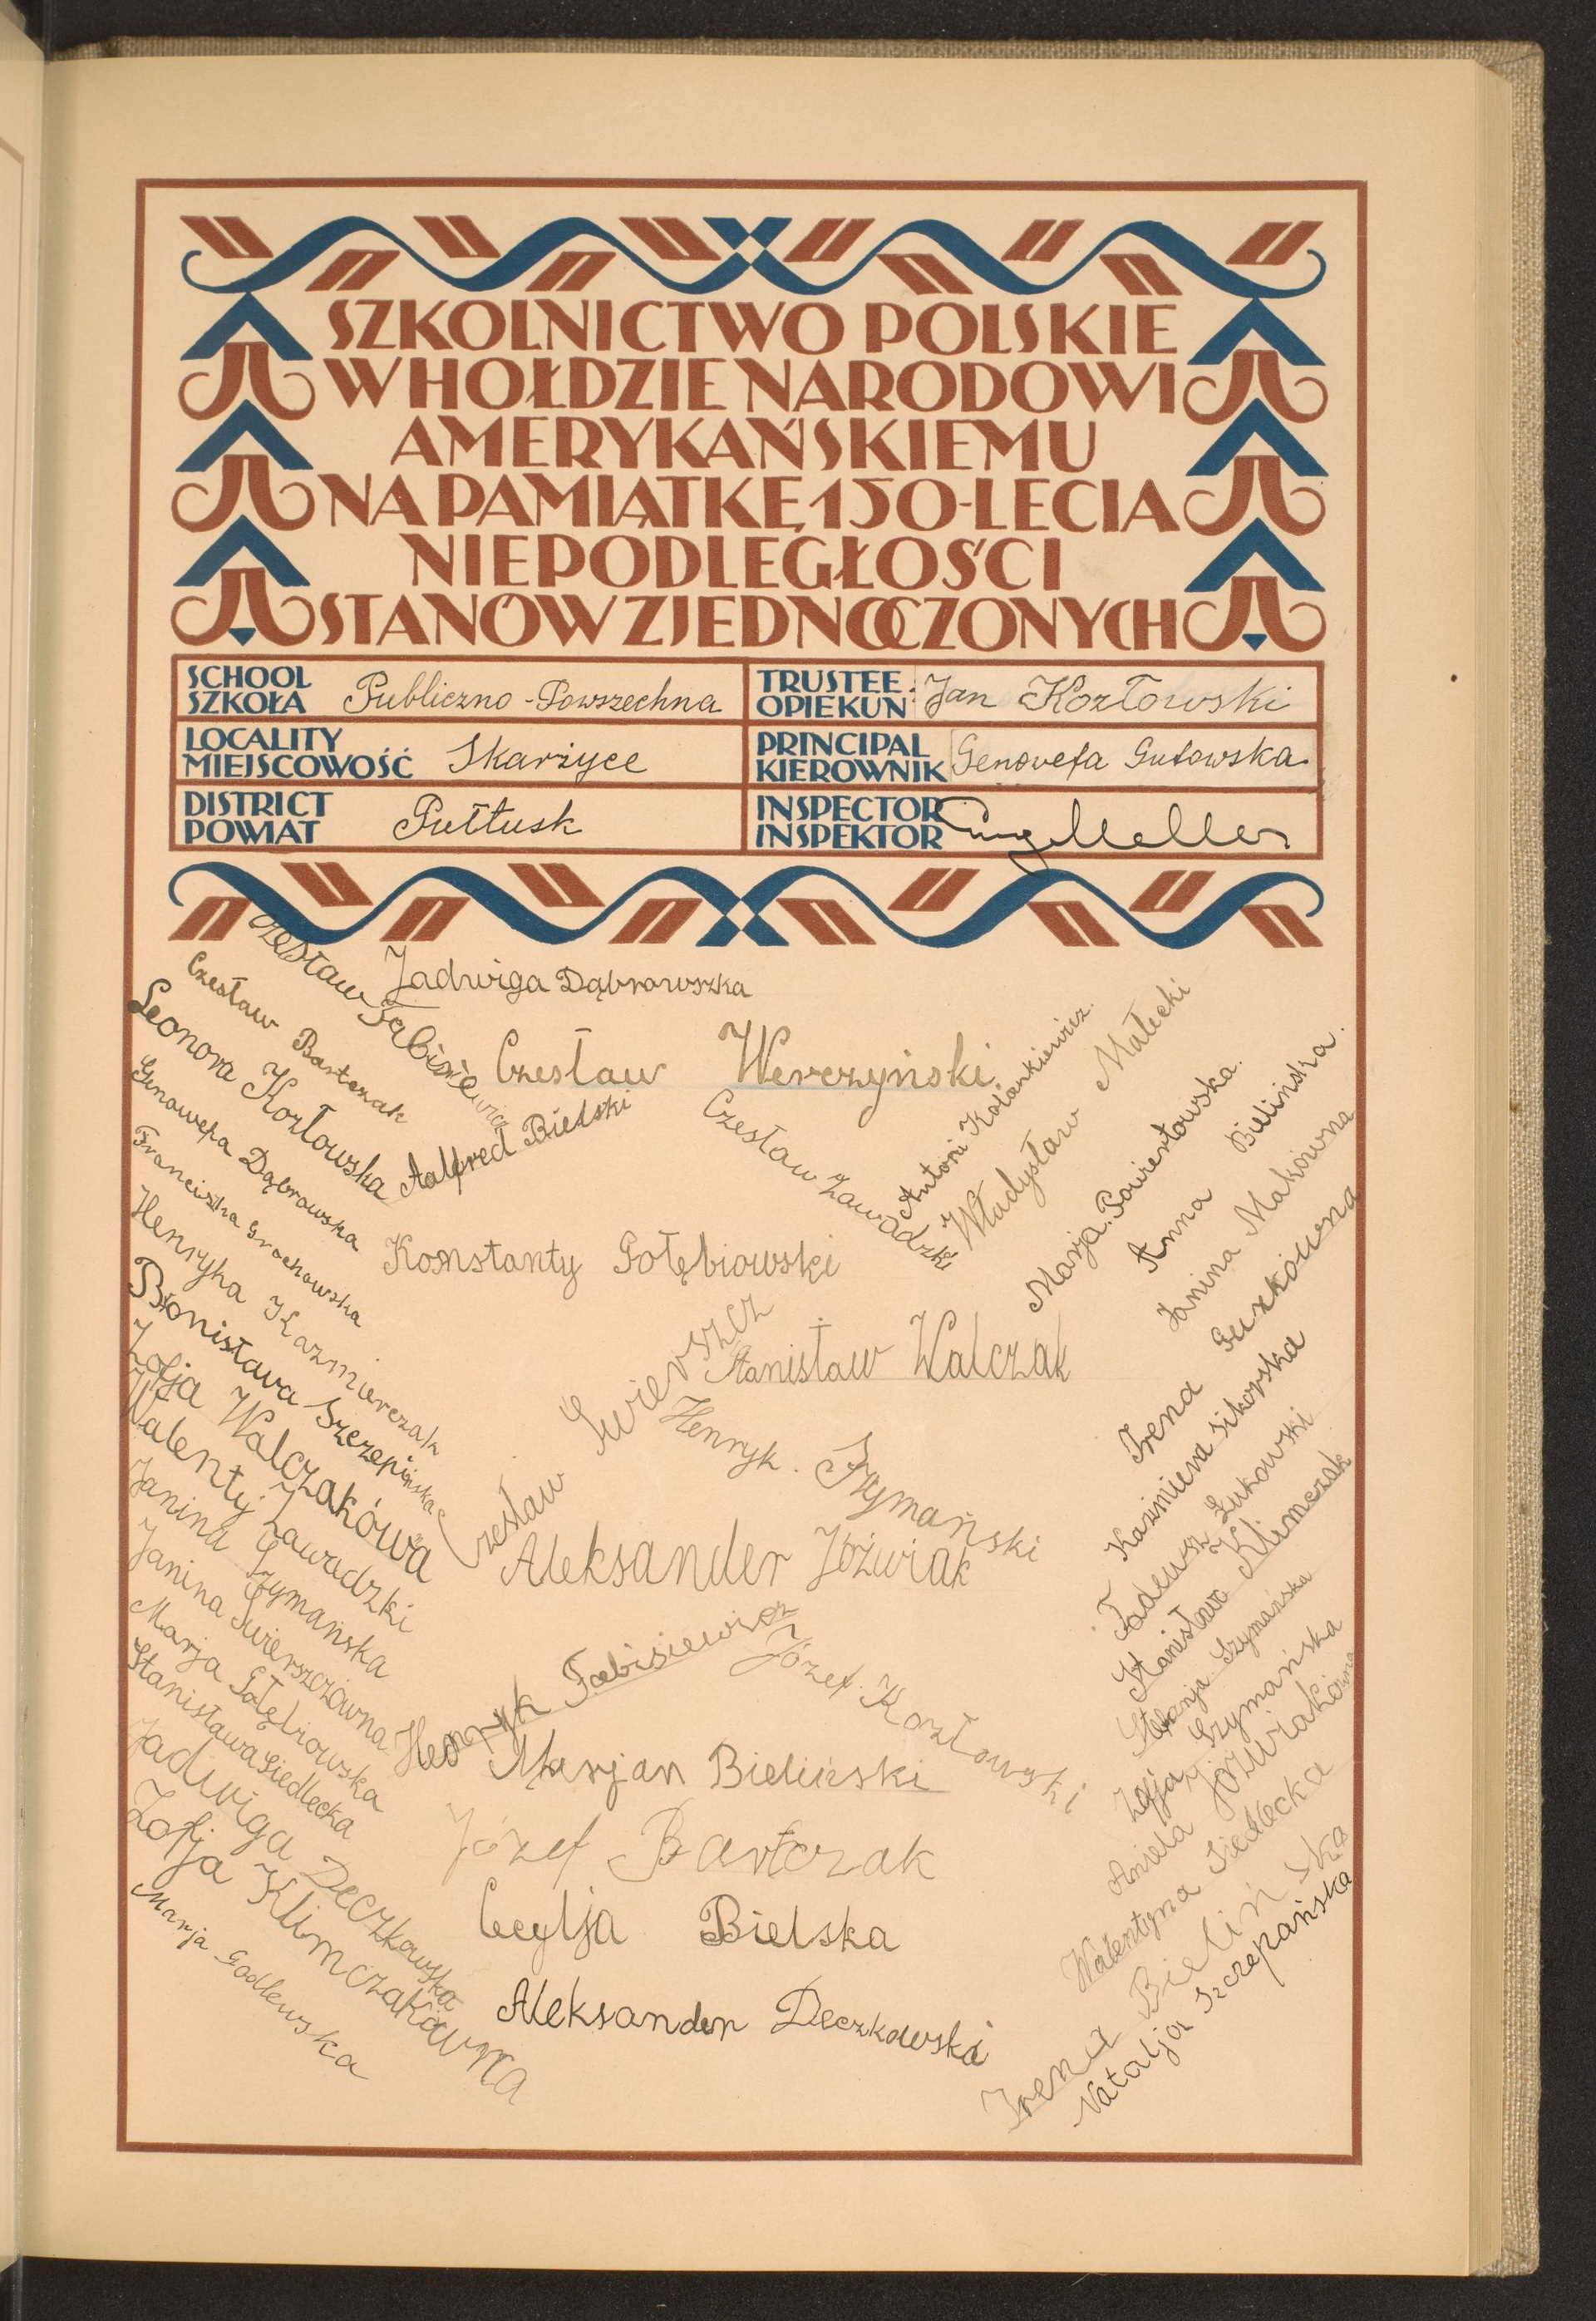 SZKOLNICTWO POLSKIE
W HOŁDZIE NARODOWI
AMERYKAŃSKIEMU
NA PAMIĄTKĘ 150-LECIA
NIEPODLEGŁOŚCI
STANÓW ZJEDNOCZONYCH
SCHOOL
SZKOŁA Publiczno-Powszechna
TRUSTEE
OPIEKUN Jan Kozłowski
LOCALITY
MIEJSCOWOŚĆ Skarżyce
PRINCIPAL
KIEROWNIK Genovefa Gutowska
DISTRICT
POWIAT Pułtusk
INSPECTOR
INSPEKTOR
Czesław Fabisiewicz
Jadwiga Dąbrowszka
Czesław Bartczak
Leonora Kozłowska
Genowefa Dąbrowska
Franciszka Grochowska
Henryka Kazmierczak
Bronisława Szczepińska
Zofja Walczakówa
Walenty Zawadzki
Janina Szymańska
Janina Świerszczówna
Marja Gołębiowska
Stanisława Siedlecka
Jadwiga Deczkowska
Zofja Klimczakówna
Marja Godlewska
Czesław Werczyński
Aalfred Bielski
Czesław Zawadzki
Konstanty Gołębiowski
Czesław Świerszcz
Stanisław Walczak
Henryk. Szymański
Aleksander Jóżwiak
Henryk Fabisiewicz
Józef. Kozłowski
Marjan Bieliński
Józef Bartczak
Cecylja Bielska
Aleksander Deczkowski
Antoni Kolankiewicz.
Władysław Małecki
Marja. Powierłowska.
Anna Bielińska.
Janina Makówna
Irena Guzkówna
Kazimiera Sikorska
Tadeusz Żukowski
Stanisława Klimczak
Stefanja Szymańska
Zofja Szymańska
Aniela Jóżwiakówna
Walentyna Siedlecka
Irena Bielińska
Natalja Szczepańska